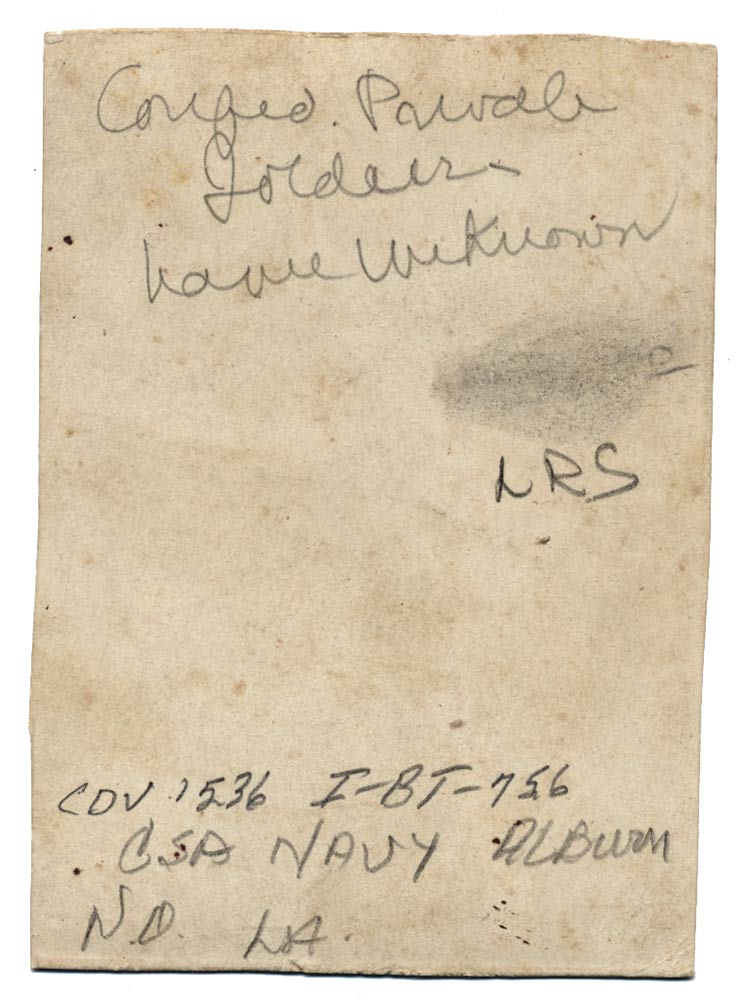 Confed. Private
Soldier
name Unknown
LRS
CDV 1536 I-BT-756
CSA NAVY ALBUM
N.O. LA.